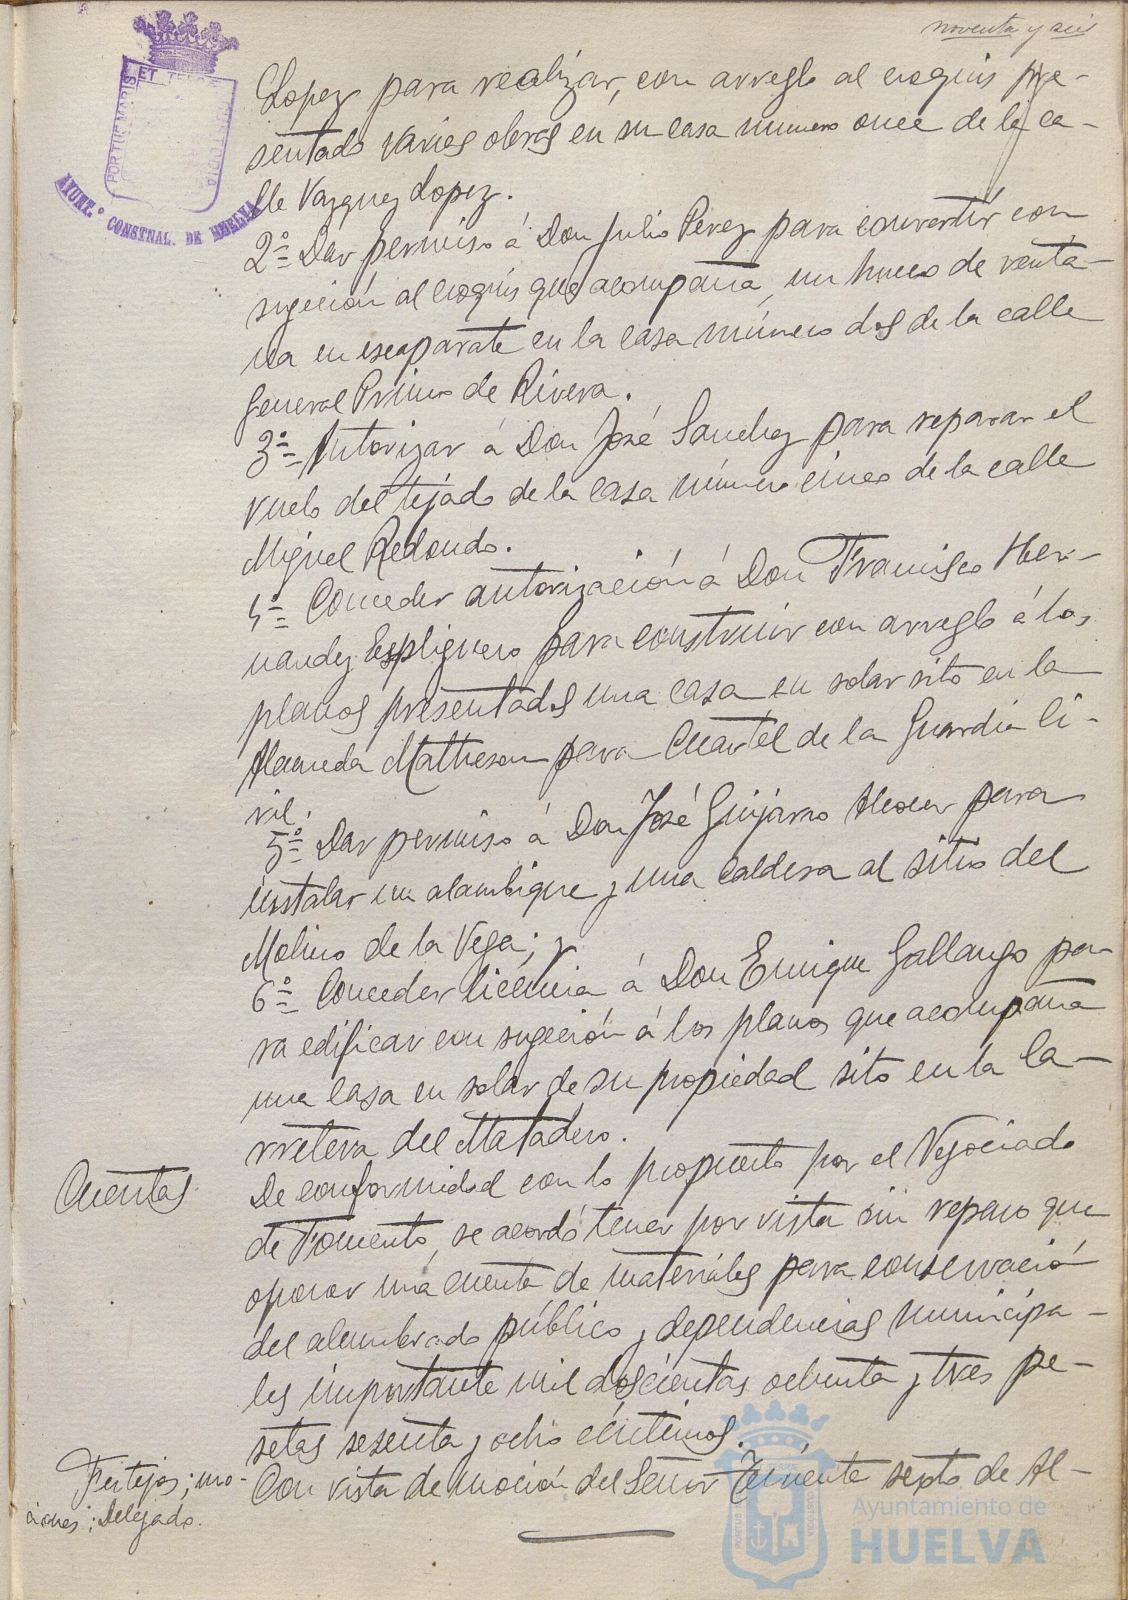 noventa y seis
PORTUS MARIS ET TERRÆ CUSTODIA
AYUNT.º CONSTNAL. DE HUELVA
Lopez para realizar, con arreglo al croquis pre-
sentado varias obras en su casa número once de la ca-
lle Vazquez Lopez.
2º= Dar permiso á Don Julio Perez para convertir con
sugeción al croquis que acompaña, un hueco de venta-
na en escaparate en la casa número dos de la calle
General Primo de Rivera.
3º= Autorizar á Don José Sanchez para reparar el
vuelo del tejado de la casa número cinco de la calle
Miguel Redondo.
4º= Conceder autorización á Don Francisco Her-
nandez Espliguero para construir con arreglo á los
planos presentados una casa en solar sito en la
Alameda Matheson para Cuartel de la Guardia Ci-
vil.
5º= Dar permiso á Don José Guijarro Alcocer para
instalar un alambique y una caldera al sitio del
Molino de la Vega; y
6º= Conceder licencia á Don Enrique Gallango pa-
ra edificar con sugeción á los planos que acompaña
una casa en solar de su propiedad sito en la Ca-
rretera del Matadero.
Cuentas
De conformidad con lo propuesto por el Negociado
de Fomento, se acordó tener por vista sin reparo que
oponer una cuenta de materiales para conservación
del alumbrado público y dependencias municipa-
les importante mil doscientas ochenta y tres pe-
setas sesenta y ocho céntimos.
Festejos; mo-
ciones; Delegado.
Con vista de moción del Señor Teniente sexto de Al-
Ayuntamiento de
HUELVA